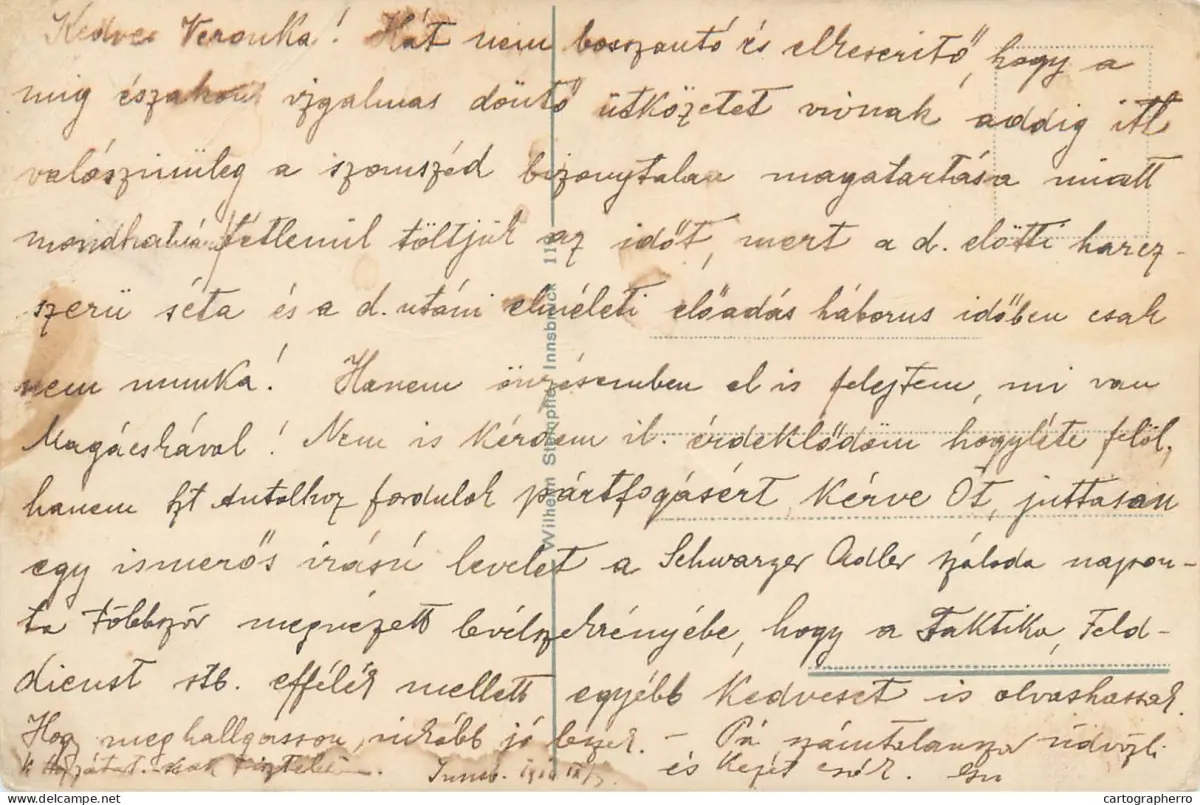 Kedves Veronka! Hát nem bosszantó és elkeserítő, hogy a
mig északon izgalmas döntő ütközetet vivnak addig itt
valószinüleg a szomszéd bizonytalan magatartása miatt
mondhatni tétlenül töltjük az időt, mert a d. előtti harcz-
szerü séta és a d. utáni elméleti előadás háborus időben csak
nem munka! Hanem önzésemben el is felejtem, mi van
Magácskával! Nem is kérdem il. érdeklődöm hogyléte felöl,
hanem Szt Antalhoz fordulok pártfogásért, kérve Őt, juttasson
egy ismerős irásu levelet a Schwarzer Adler szálloda napon-
ta többször megnézett levélszekrényébe, hogy a Taktika, Feld-
dienst stb. effélék mellett egyébb kedveset is olvashassak.
Hogy meghallgasson, jó leszek. – Pá számtalanszor üdvözli
és kezét csók.
Wilhelm Stempfle, Innsbruck
cartographerro